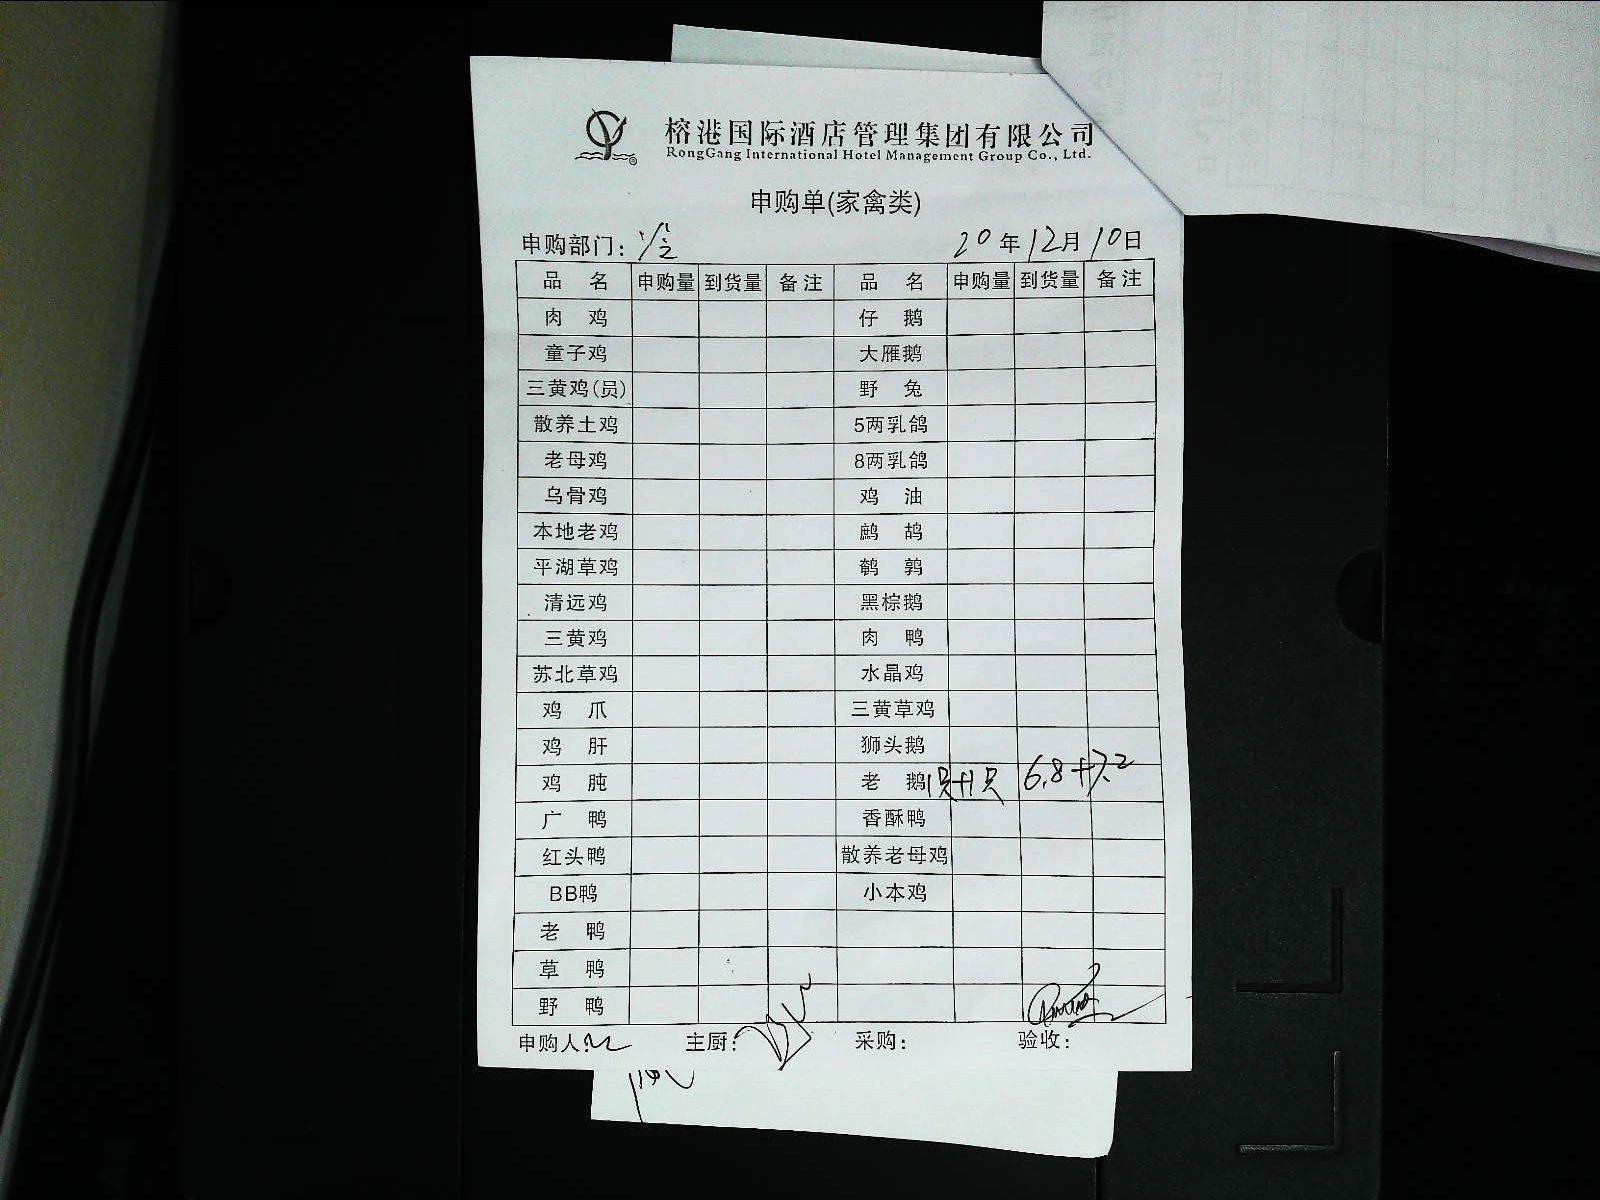 榕港国际酒店管理集团有限公司
RongGang International Hotel Management Group Co., Ltd.
申购单(家禽类)
申购部门:
20年12月10日
品 名 申购量 到货量 备注 品 名 申购量 到货量 备注
肉 鸡 仔 鹅
童子鸡 大雁鹅
三黄鸡(员) 野 兔
散养土鸡 5两乳鸽
老母鸡 8两乳鸽
乌骨鸡 鸡 油
本地老鸡 鹧 鸪
平湖草鸡 鹌 鹑
清远鸡 黑棕鹅
三黄鸡 肉 鸭
苏北草鸡 水晶鸡
鸡 爪 三黄草鸡
鸡 肝 狮头鹅
鸡 肫 老 鹅 1只+1只 6.8+7.2
广 鸭 香酥鸭
红头鸭 散养老母鸡
BB鸭 小本鸡
老 鸭
草 鸭
野 鸭
申购人: 主厨: 采购: 验收: